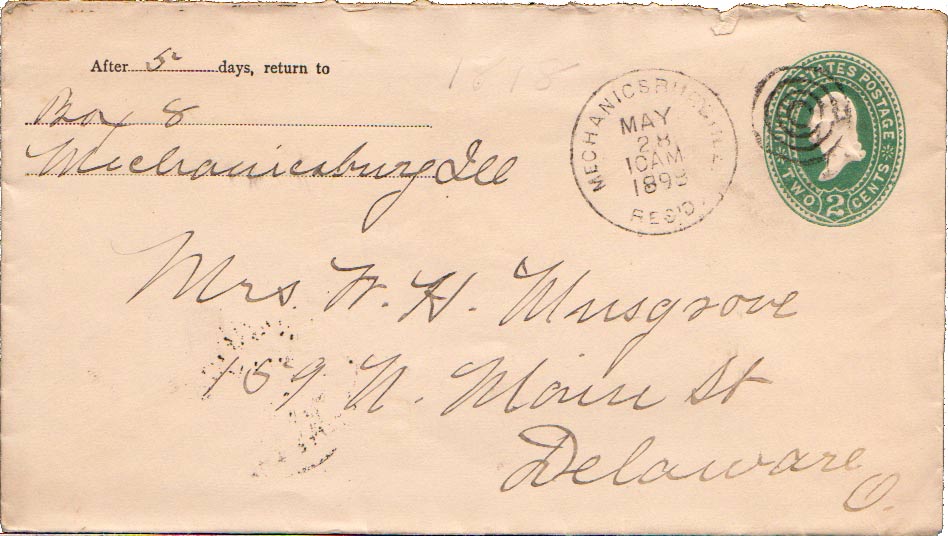 After 5 days, return to
Box 8
Mechanicsburg Ill
MECHANICSBURG, ILL.
MAY
28
10AM
1893
REC'D.
UNITED STATES POSTAGE
TWO 2 CENTS
Mrs. W. H. Musgrove
159 N. Main St
Delaware
O.